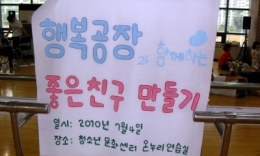 행복공장과 함께하는
좋은친구 만들기
일시: 2010년 7월4일
장소: 청소년 문화센터 온누리연습실